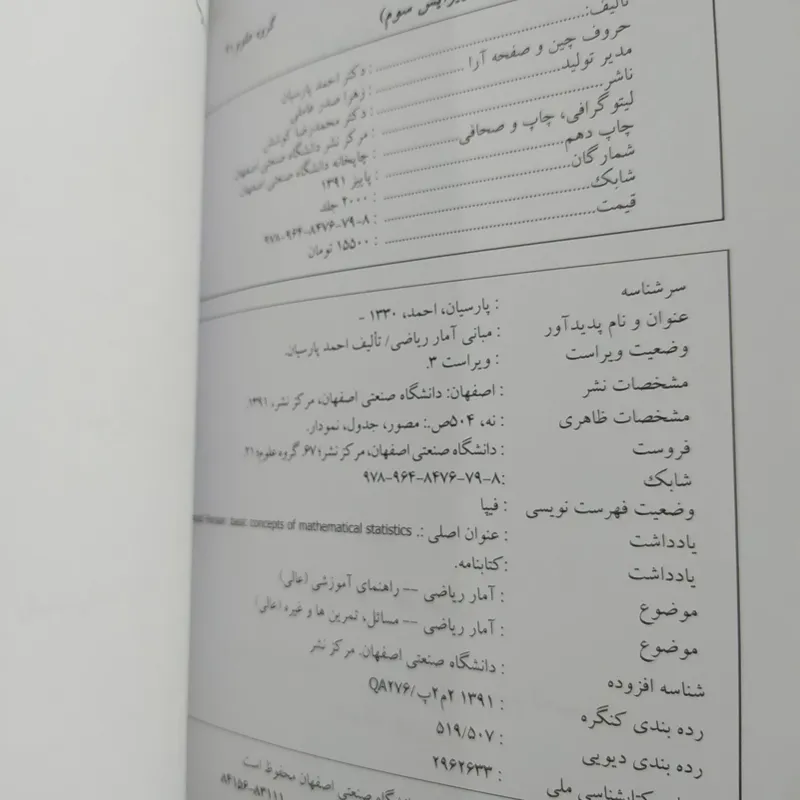 گروه علوم ۲۱
ویرایش سوم)
تألیف: دکتر احمد پارسیان
حروف چین و صفحه آرا : زهرا صدر عاملی
مدیر تولید : دکتر محمدرضا کوشش
ناشر : مرکز نشر دانشگاه صنعتی اصفهان
لیتوگرافی، چاپ و صحافی : چاپخانه دانشگاه صنعتی اصفهان
چاپ دهم : پاییز ۱۳۹۱
شمارگان : ۲۰۰۰ جلد
شابک : ۹۷۸-۹۶۴-۸۴۷۶-۷۹-۸
قیمت : ۱۵۵۰۰ تومان
سرشناسه : پارسیان، احمد، ۱۳۳۰ -
عنوان و نام پدیدآور : مبانی آمار ریاضی/ تألیف احمد پارسیان.
وضعیت ویراست : ویراست ۳.
مشخصات نشر : اصفهان: دانشگاه صنعتی اصفهان، مرکز نشر، ۱۳۹۱.
مشخصات ظاهری : نه، ۵۰۴ص.: مصور، جدول، نمودار.
فروست : دانشگاه صنعتی اصفهان، مرکز نشر؛ ۶۷. گروه علوم؛ ۲۱.
شابک :۹۷۸-۹۶۴-۸۴۷۶-۷۹-۸
وضعیت فهرست نویسی : فیپا
یادداشت : عنوان اصلی :. basic concepts of mathematical statistics
یادداشت :کتابنامه.
موضوع : آمار ریاضی -- راهنمای آموزشی (عالی)
موضوع : آمار ریاضی -- مسائل، تمرین ها و غیره (عالی)
شناسه افزوده : دانشگاه صنعتی اصفهان. مرکز نشر
رده بندی کنگره : ۱۳۹۱ ۲م۲پ/QA۲۷۶
رده بندی دیویی : ۵۱۹/۵۰۷
کتابشناسی ملی : ۲۹۶۲۶۳۳
صنعتی اصفهان محفوظ است
۸۴۱۵۶-۸۳۱۱۱